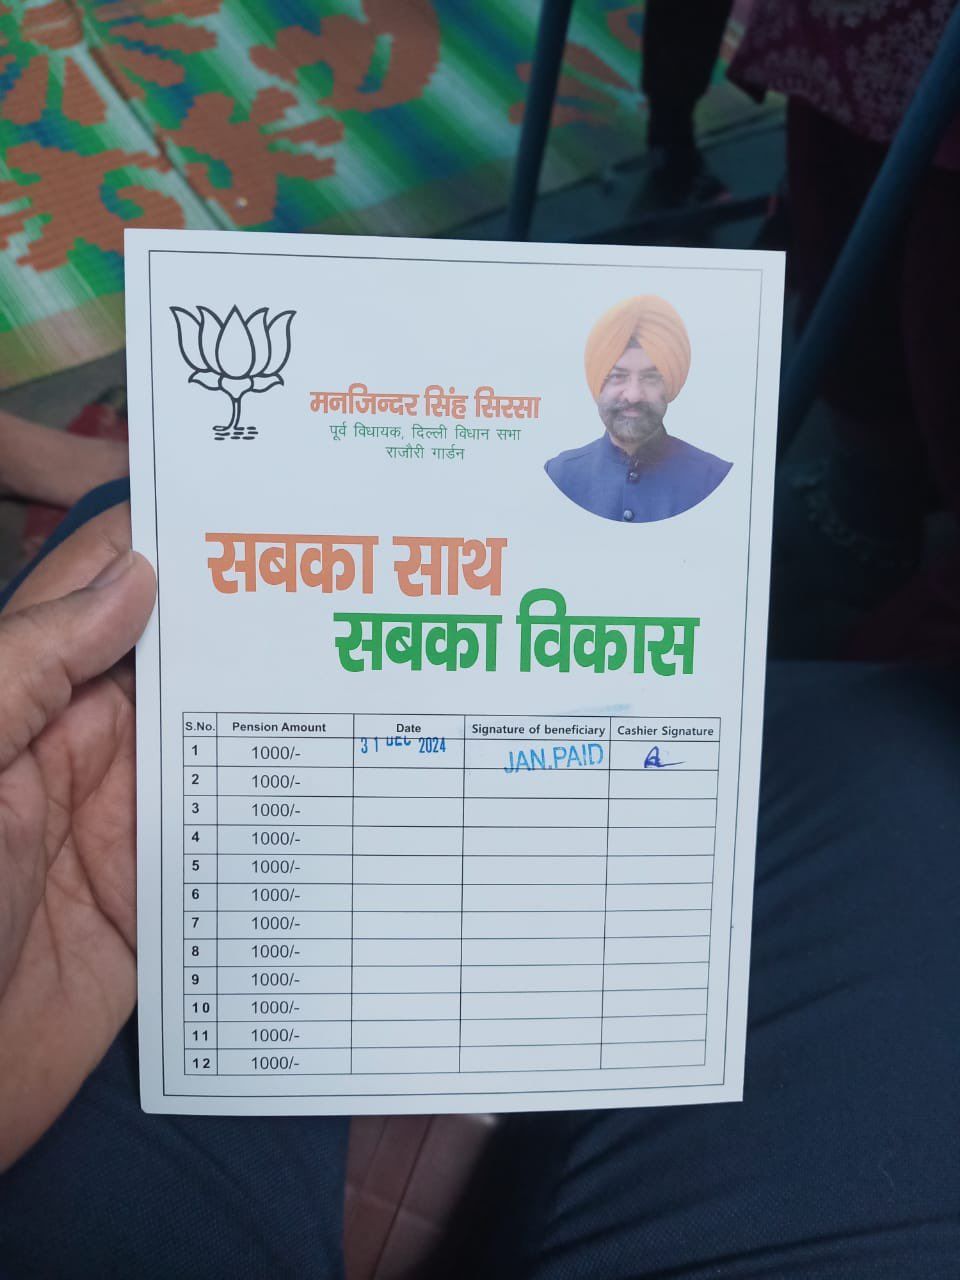 मनजिन्दर सिंह सिरसा
पूर्व विधायक, दिल्ली विधान सभा
राजौरी गार्डन
सबका साथ
सबका विकास
S.No. Pension Amount Date Signature of beneficiary Cashier Signature
1 1000/- 31 DEC 2024 JAN.PAID
2 1000/-
3 1000/-
4 1000/-
5 1000/-
6 1000/-
7 1000/-
8 1000/-
9 1000/-
10 1000/-
11 1000/-
12 1000/-